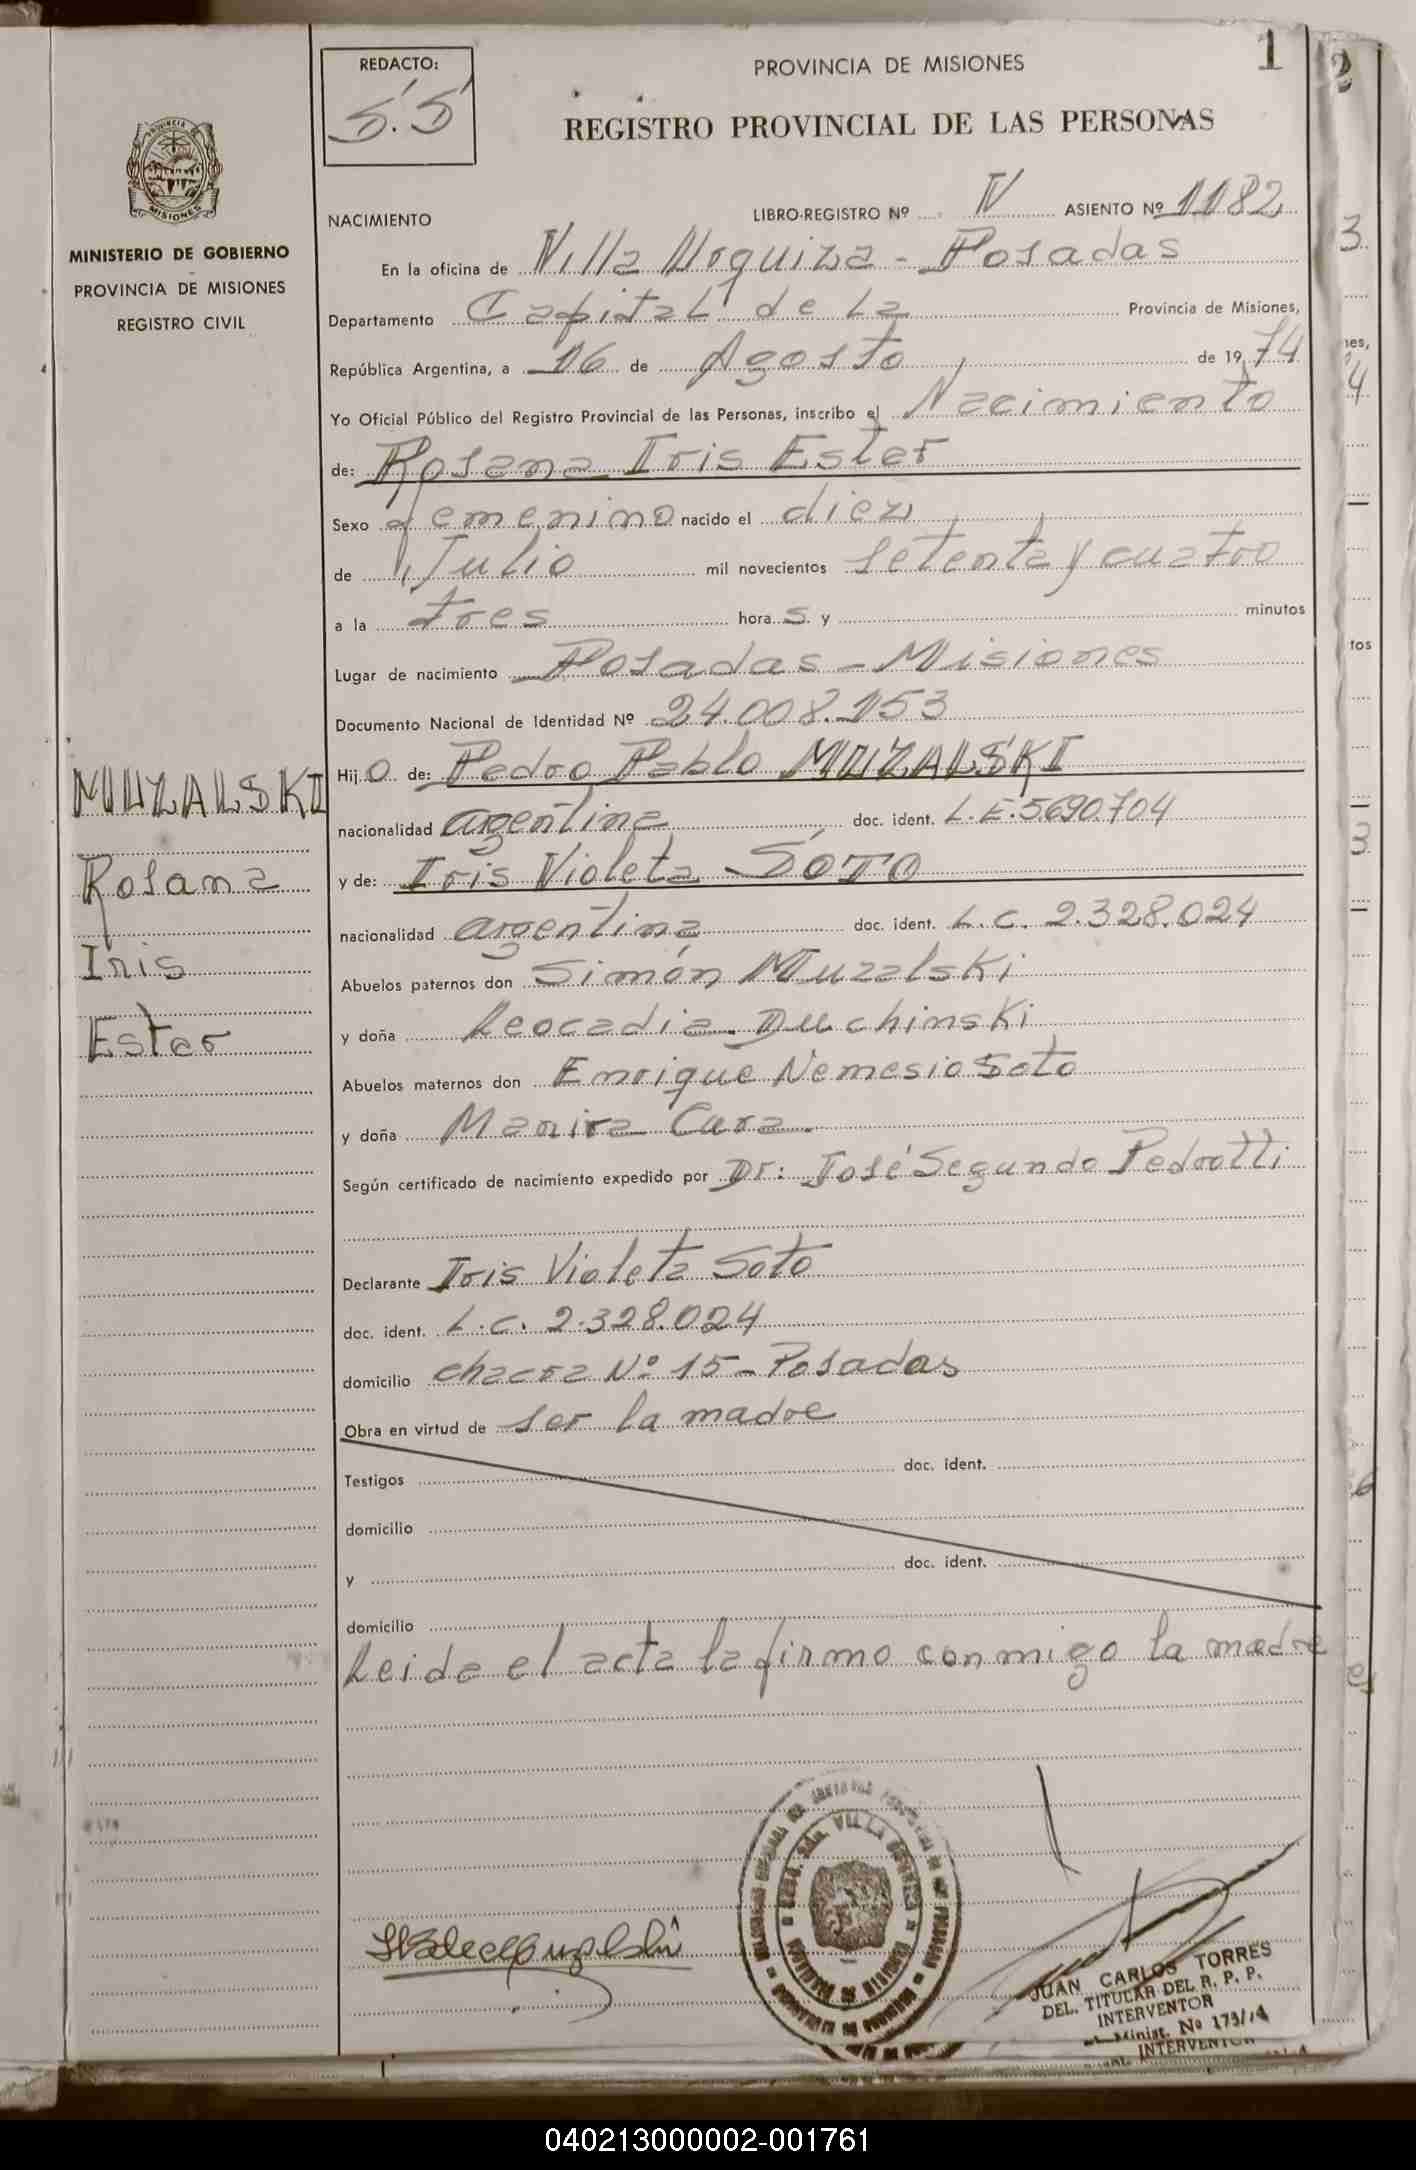 REDACTO:
S.S
PROVINCIA DE MISIONES
1
2
REGISTRO PROVINCIAL DE LAS PERSONAS
PROVINCIA DE
MISIONES
MINISTERIO DE GOBIERNO
PROVINCIA DE MISIONES
REGISTRO CIVIL
NACIMIENTO
LIBRO-REGISTRO Nº IV ASIENTO Nº 1182
En la oficina de Villa Urquiza - Posadas
Departamento Capital de La Provincia de Misiones,
República Argentina, a 16 de Agosto de 1974
Yo Oficial Público del Registro Provincial de las Personas, inscribo el Nacimiento
de: Rosana Iris Ester
Sexo femenino nacido el diez
de Julio mil novecientos setenta y cuatro
a la tres hora s y minutos
Lugar de nacimiento Posadas - Misiones
Documento Nacional de Identidad Nº 24.008.153
Hij o de: Pedro Pablo MUZALSKI
nacionalidad argentina doc. ident. L.E. 5690.704
y de: Iris Violeta SOTO
nacionalidad argentina doc. ident. L.C. 2.328.024
Abuelos paternos don Simón Muzalski
y doña Leocadia Duchinski
Abuelos maternos don Enrique Nemesio Soto
y doña Manira Cura
Según certificado de nacimiento expedido por Dr: José Segundo Pedrotti
Declarante Iris Violeta Soto
doc. ident. L.C. 2.328.024
domicilio chacra Nº 15 - Posadas
Obra en virtud de ser la madre
Testigos doc. ident.
domicilio
y doc. ident.
domicilio
Leida el acta la firmo conmigo la madre
MUZALSKI
Rosana
Iris
Ester
JUAN CARLOS TORRES
DEL. TITULAR DEL R. P. P.
INTERVENTOR
Minist. Nº 173/74
INTERVENTOR
040213000002-001761